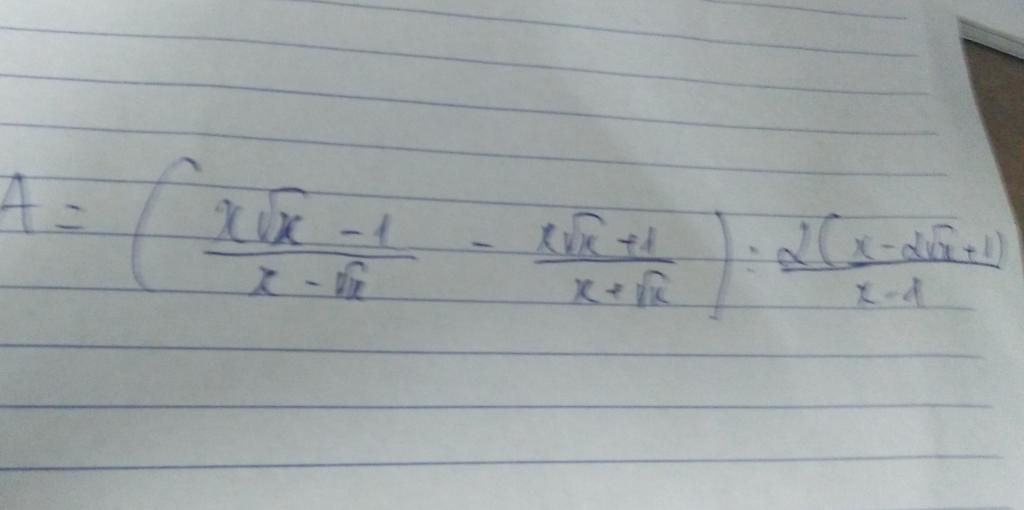 A = ( \frac{x\sqrt{x} - 1}{x - \sqrt{x}} - \frac{x\sqrt{x} + 1}{x + \sqrt{x}} ) : \frac{2(x - 2\sqrt{x} + 1)}{x - 1}